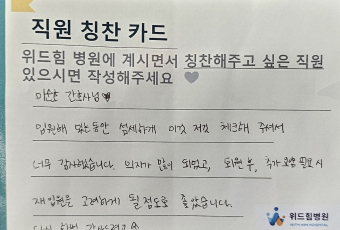 직원 칭찬 카드
위드힘 병원에 계시면서 칭찬해주고 싶은 직원
있으시면 작성해주세요
간호사님
입원해 있는동안 섬세하게 이것 저것 체크해 주셔서
너무 감사했습니다. 의지가 많이 되었고, 퇴원 후, 추가 요양 필요 시
재입원을 고려하게 될 정도로 좋았습니다.
위드힘병원
WITH HIM HOSPITAL